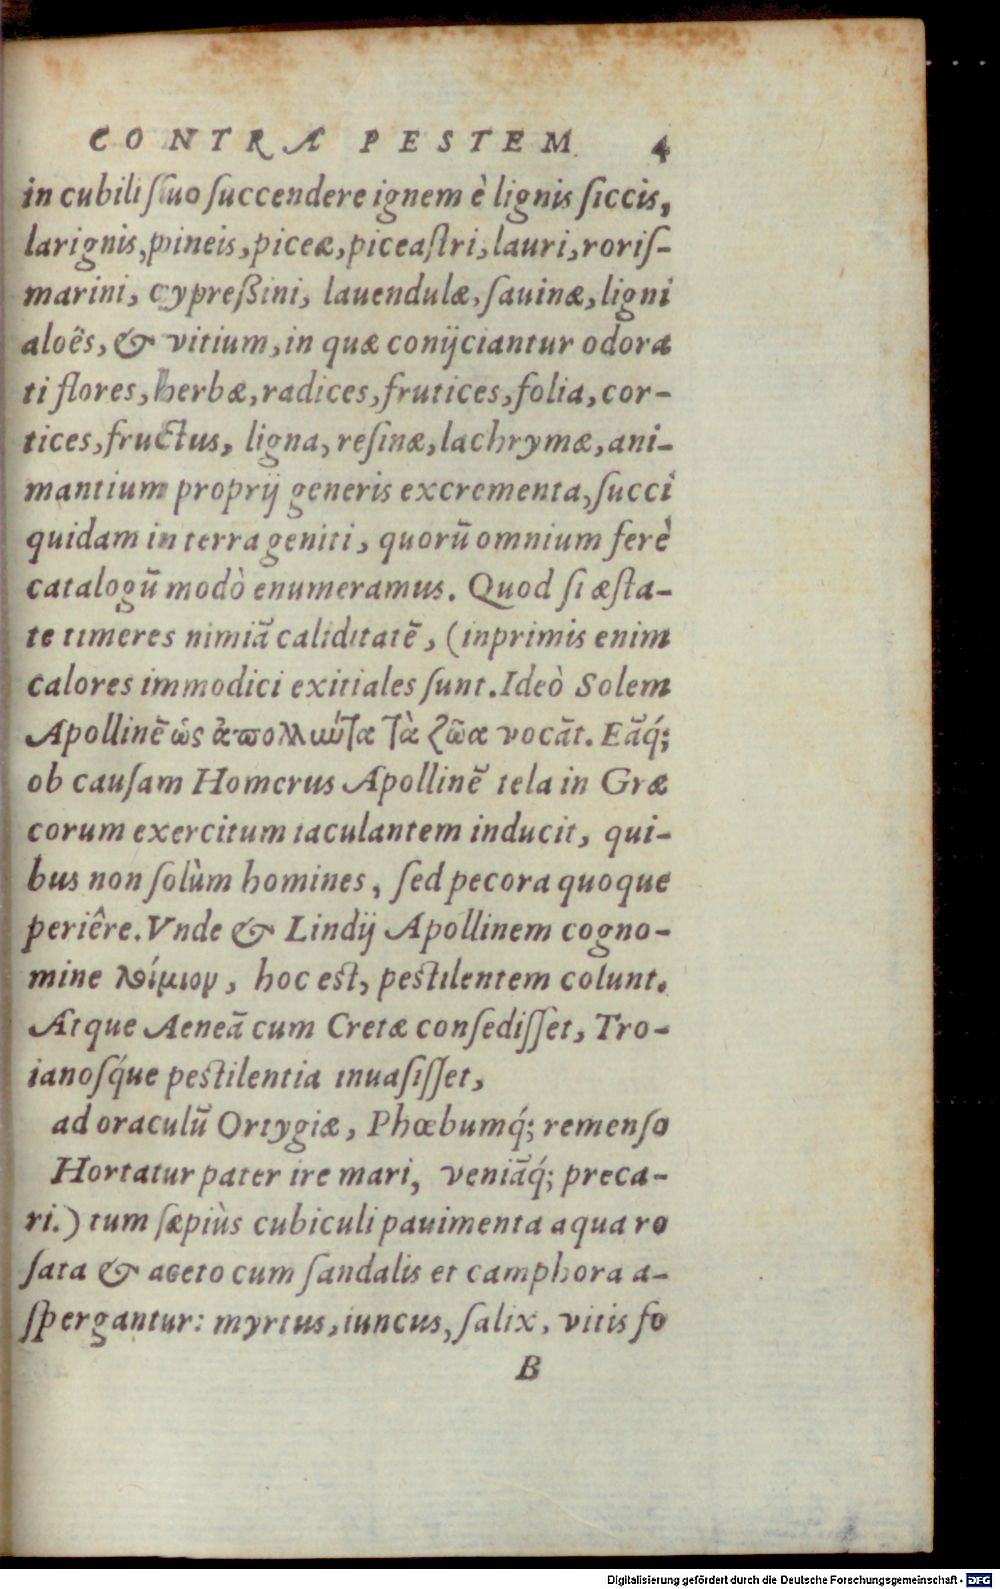 CONTRA PESTEM 4
in cubili ſuo ſuccendere ignem è lignis ſiccis,
larignis, pineis, piceæ, piceaſtri, lauri, roriſ-
marini, cypreßini, lauendulæ, ſauinæ, ligni
aloês, & vitium, in quæ conijciantur odora
ti flores, herbæ, radices, frutices, folia, cor-
tices, fructus, ligna, reſinæ, lachrymæ, ani-
mantium proprij generis excrementa, ſucci
quidam in terra geniti, quorū omnium ferè
catalogū modò enumeramus. Quod ſi æſta-
te timeres nimiā caliditatē, (inprimis enim
calores immodici exitiales ſunt. Ideò Solem
Apollinē ὡς ἀπολλωύτα τὰ ζῶα vocāt. Eāq́;
ob cauſam Homerus Apollinē tela in Græ
corum exercitum iaculantem inducit, qui-
bus non ſolùm homines, ſed pecora quoque
periêre. Vnde & Lindij Apollinem cogno-
mine λοίμιον, hoc est, pestilentem colunt.
Atque Aeneā cum Cretæ conſediſſet, Tro-
ianoſq́ue pestilentia inuaſiſſet,
ad oraculū Ortygiæ, Phœbumq́; remenſo
Hortatur pater ire mari, veniāq́; preca-
ri.) tum ſæpiùs cubiculi pauimenta aqua ro
ſata & aceto cum ſandalis et camphora a-
ſpergantur: myrtus, iuncus, ſalix, vitis fo
B
Digitalisierung gefördert durch die Deutsche Forschungsgemeinschaft - DFG